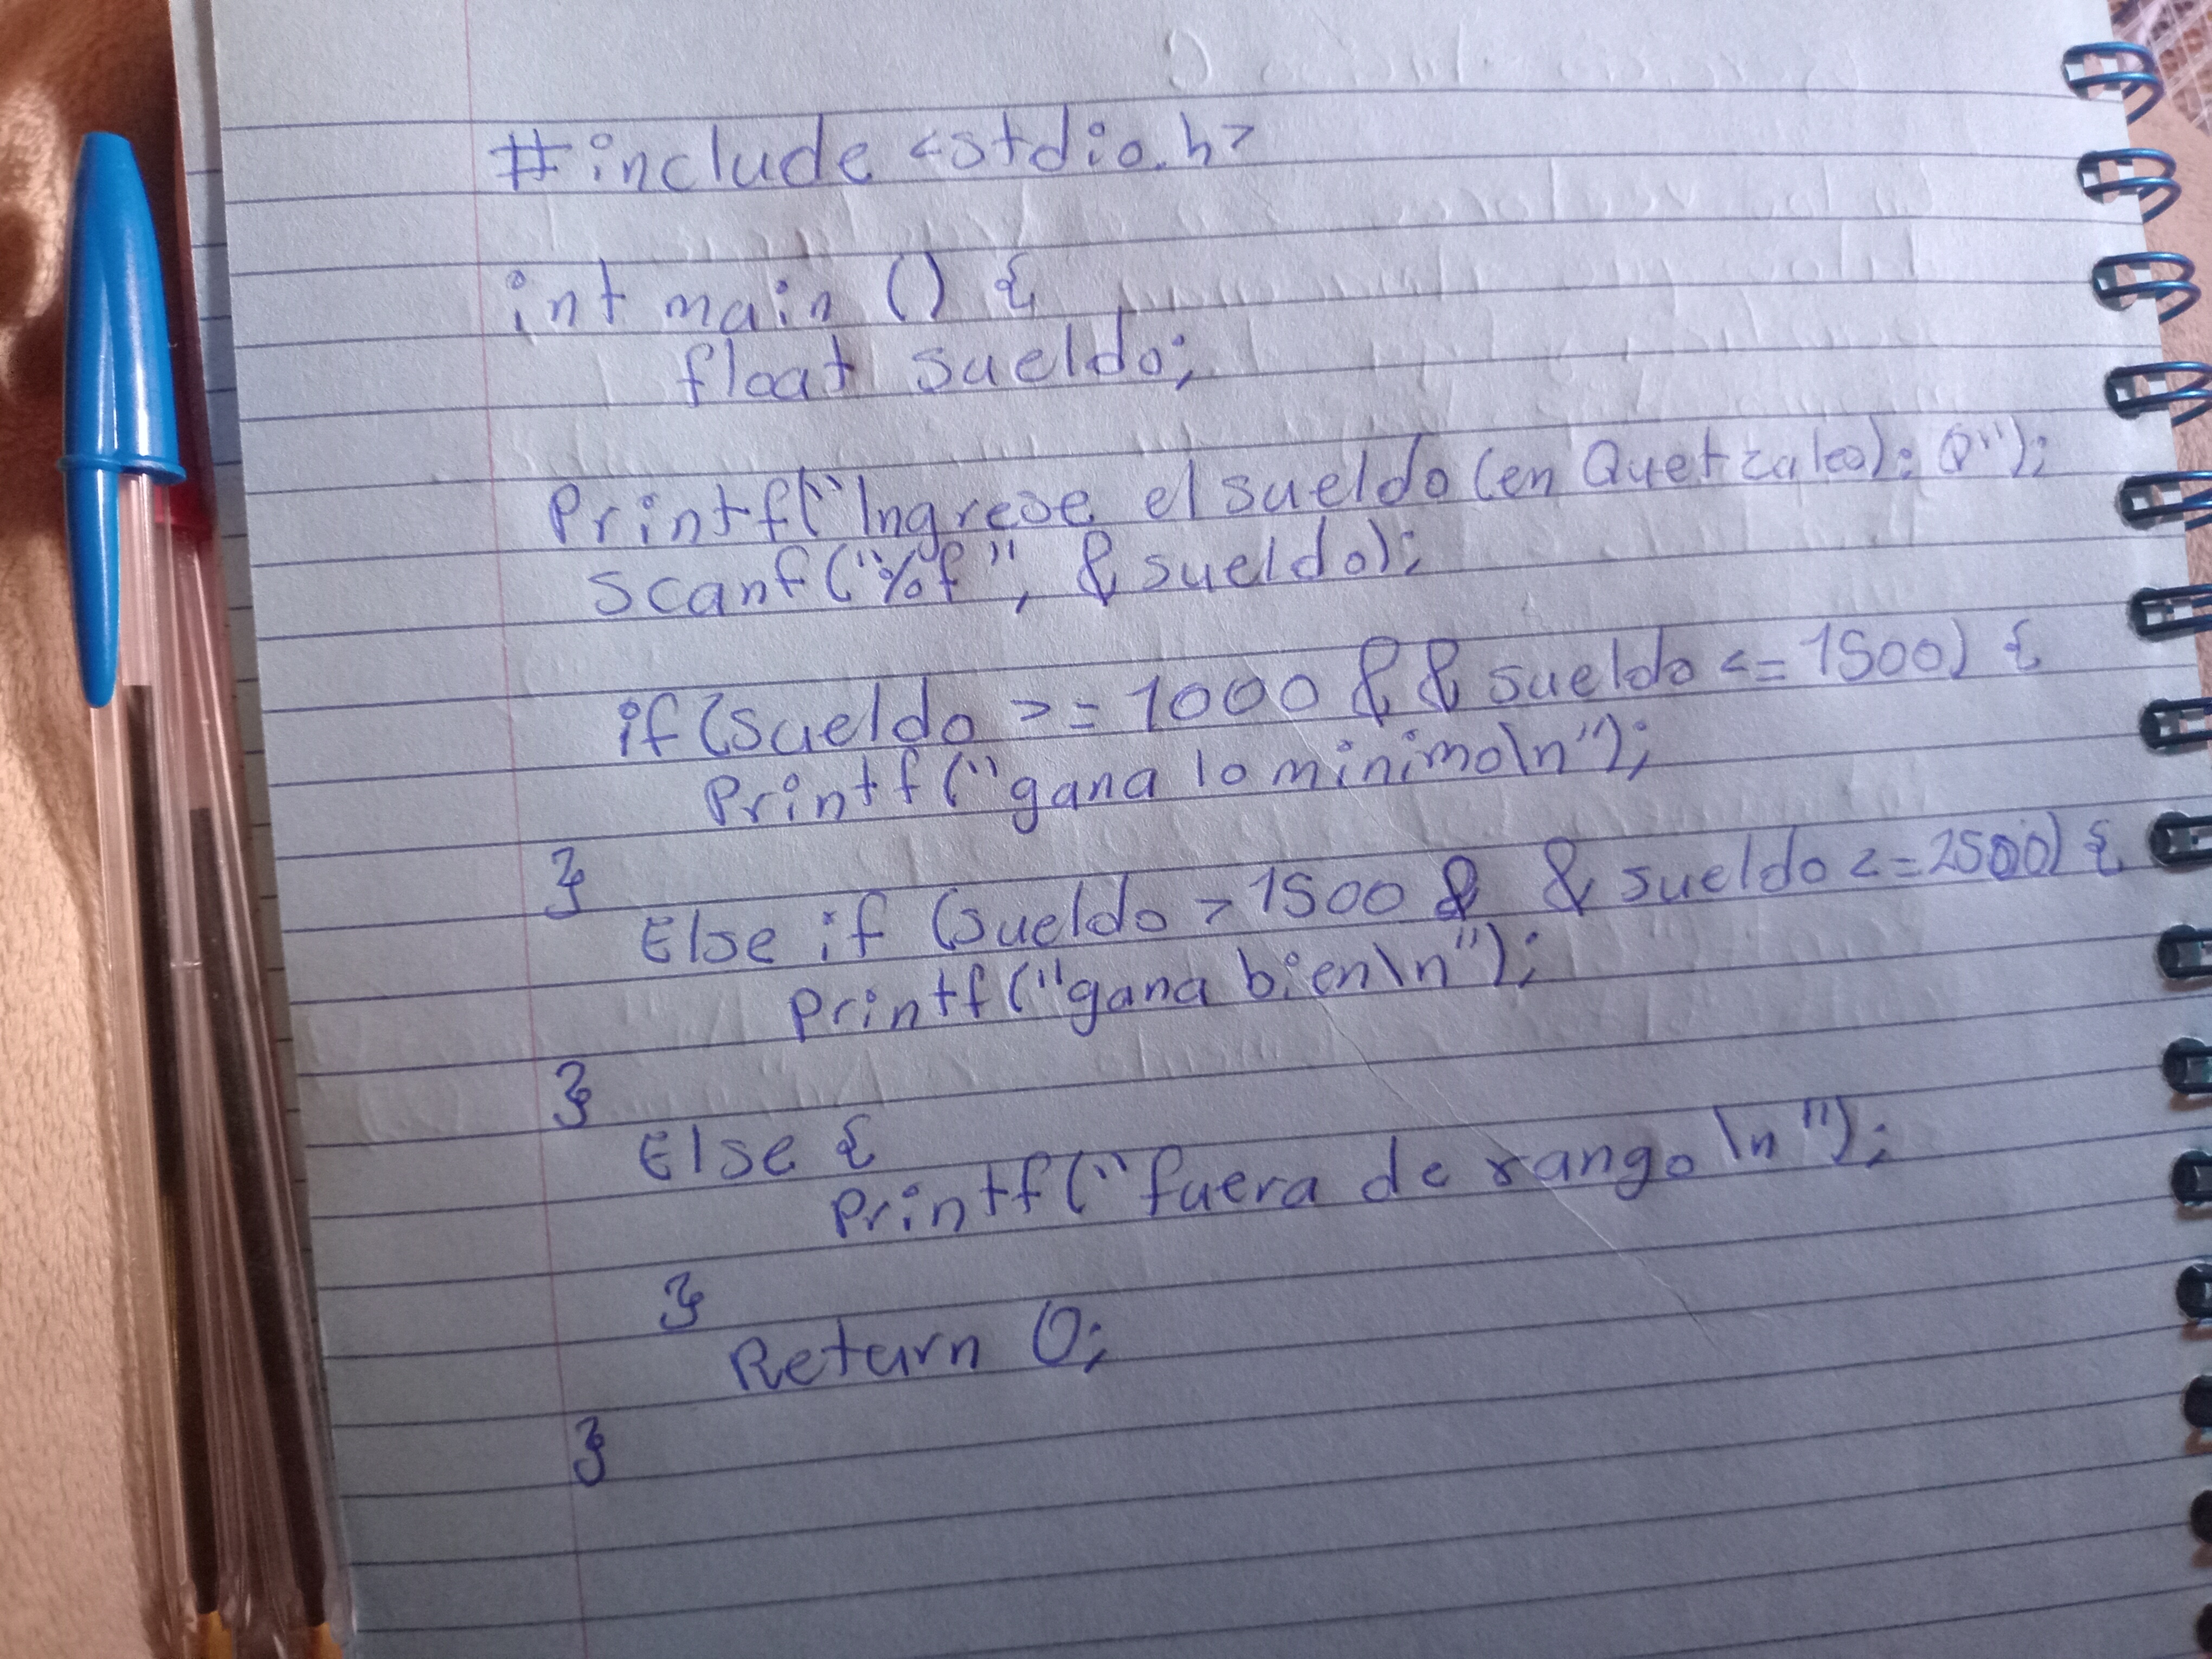 #include <stdio.h>
int main () {
float sueldo;
Printf("Ingrese el sueldo (en Quetzales): Q");
Scanf("%f", &sueldo);
if (sueldo >= 1000 && sueldo <= 1500) {
Printf ("gana lo minimo\n");
}
Else if (sueldo > 1500 & & sueldo <= 2500) {
Printf ("gana bien\n");
}
Else {
Printf("fuera de rango \n");
}
Return 0;
}